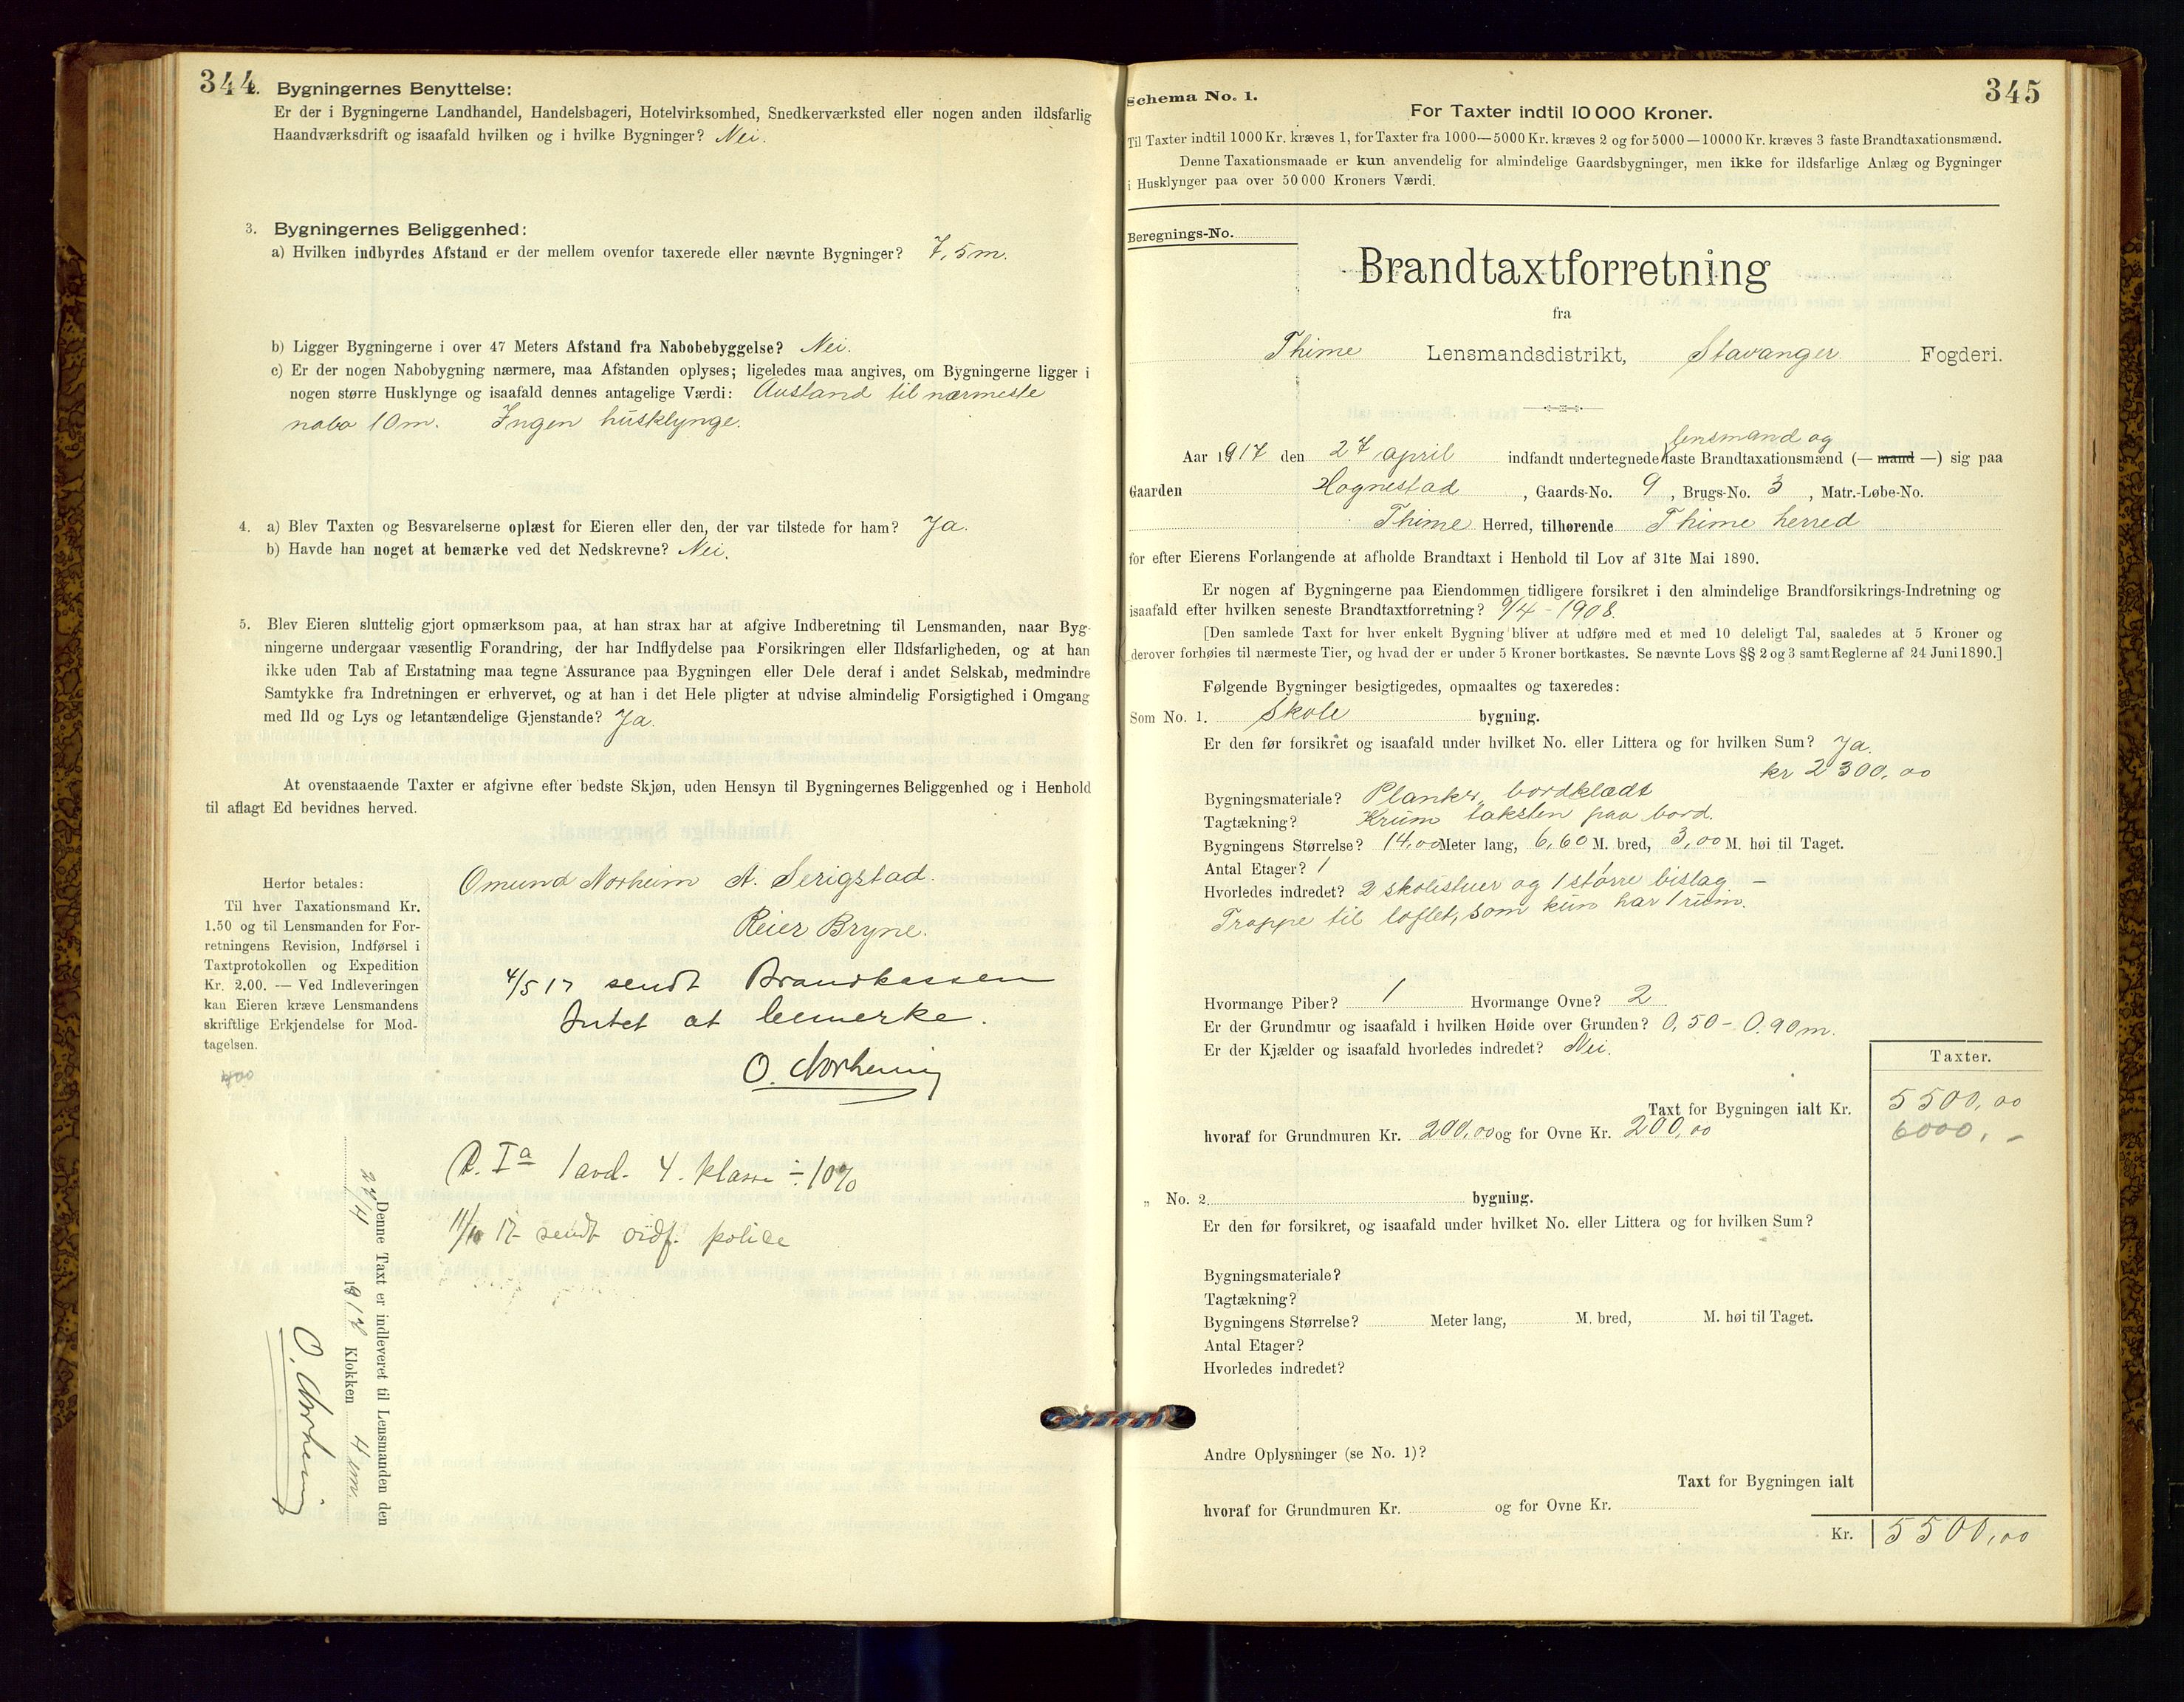 344
2. Bygningernes Benyttelse:
Er der i Bygningerne Landhandel, Handelsbageri, Hotelvirksomhed, Snedkerværksted eller nogen anden ildsfarlig
Haandværksdrift og isaafald hvilken og i hvilke Bygninger? Nei.
3. Bygningernes Beliggenhed:
a) Hvilken indbyrdes Afstand er der mellem ovenfor taxerede eller nævnte Bygninger? 7,5 m.
b) Ligger Bygningerne i over 47 Meters Afstand fra Nabobebyggelse? Nei.
c) Er der nogen Nabobygning nærmere, maa Afstanden oplyses; ligeledes maa angives, om Bygningerne ligger i
nogen større Husklynge og isaafald dennes antagelige Værdi: Avstand til nærmeste
nabo 10 m. Ingen husklynge.
4. a) Blev Taxten og Besvarelserne oplæst for Eieren eller den, der var tilstede for ham? Ja.
b) Havde han noget at bemærke ved det Nedskrevne? Nei.
5. Blev Eieren sluttelig gjort opmærksom paa, at han strax har at afgive Indberetning til Lensmanden, naar Byg-
ningerne undergaar væsentlig Forandring, der har Indflydelse paa Forsikringen eller Ildsfarligheden, og at han
ikke uden Tab af Erstatning maa tegne Assurance paa Bygningen eller Dele deraf i andet Selskab, medmindre
Samtykke fra Indretningen er erhvervet, og at han i det Hele pligter at udvise almindelig Forsigtighed i Omgang
med Ild og Lys og letantændelige Gjenstande? Ja.
At ovenstaaende Taxter er afgivne efter bedste Skjøn, uden Hensyn til Bygningernes Beliggenhed og i Henhold
til aflagt Ed bevidnes herved.
Omund Norheim A. Serigstad.
Reier Bryne.
Herfor betales:
Til hver Taxationsmand Kr.
1.50 og til Lensmanden for For-
retningens Revision, Indførsel i
Taxtprotokollen og Expedition
Kr. 2.00. — Ved Indleveringen
kan Eieren kræve Lensmandens
skriftlige Erkjendelse for Mod-
tagelsen.
4/5 17 sendt Brandkassen
Intet at bemerke.
O. Norheim
R. Ia 1 avd. 4. klasse ÷ 10%
17 sendt police
Denne Taxt er indleveret til Lensmanden den
27/4 1917 Klokken 4 em.
O. Norheim
345
Schema No. 1.
For Taxter indtil 10 000 Kroner.
Til Taxter indtil 1000 Kr. kræves 1, for Taxter fra 1000—5000 Kr. kræves 2 og for 5000—10000 Kr. kræves 3 faste Brandtaxationsmænd.
Denne Taxationsmaade er kun anvendelig for almindelige Gaardsbygninger, men ikke for ildsfarlige Anlæg og Bygninger
i Husklynger paa over 50 000 Kroners Værdi.
Beregnings-No.
Brandtaxtforretning
fra
Thime Lensmandsdistrikt, Stavanger Fogderi.
lensmand og
Aar 1917 den 27 april indfandt undertegnede faste Brandtaxationsmænd (— mand —) sig paa
Gaarden Hognestad, Gaards-No. 9, Brugs-No. 3, Matr.-Løbe-No.
Thime Herred, tilhørende Thime herred
for efter Eierens Forlangende at afholde Brandtaxt i Henhold til Lov af 31te Mai 1890.
Er nogen af Bygningerne paa Eiendommen tidligere forsikret i den almindelige Brandforsikrings-Indretning og
isaafald efter hvilken seneste Brandtaxtforretning? 9/4 - 1908.
[Den samlede Taxt for hver enkelt Bygning bliver at udføre med et med 10 deleligt Tal, saaledes at 5 Kroner og
derover forhøies til nærmeste Tier, og hvad der er under 5 Kroner bortkastes. Se nævnte Lovs §§ 2 og 3 samt Reglerne af 24 Juni 1890.]
Følgende Bygninger besigtigedes, opmaaltes og taxeredes:
Som No. 1. Skole bygning.
Er den før forsikret og isaafald under hvilket No. eller Littera og for hvilken Sum? Ja.
kr 2300,00
Bygningsmateriale? Planker, bordklædt
Tagtækning? Krum taksten paa bord.
Bygningens Størrelse? 14,00 Meter lang, 6,60 M. bred, 3,00 M. høi til Taget.
Antal Etager? 1
Hvorledes indredet? 2 skolestuer og 1 større bislag —
Trappe til loftet, som kun har 1 rum.
Hvormange Piber? 1 Hvormange Ovne? 2
Er der Grundmur og isaafald i hvilken Høide over Grunden? 0,50 - 0,90 m.
Er der Kjælder og isaafald hvorledes indredet? Nei.
Taxter.
Taxt for Bygningen ialt Kr. 5500,00
hvoraf for Grundmuren Kr. 200,00 og for Ovne Kr. 200,00 6000,-
„ No. 2. bygning.
Er den før forsikret, og isaafald under hvilket No. eller Littera og for hvilken Sum?
Bygningsmateriale?
Tagtækning?
Bygningens Størrelse? Meter lang, M. bred, M. høi til Taget.
Antal Etager?
Hvorledes indredet?
Andre Oplysninger (se No. 1)?
Taxt for Bygningen ialt
hvoraf for Grundmuren Kr. og for Ovne Kr.
Kr. 5500,00